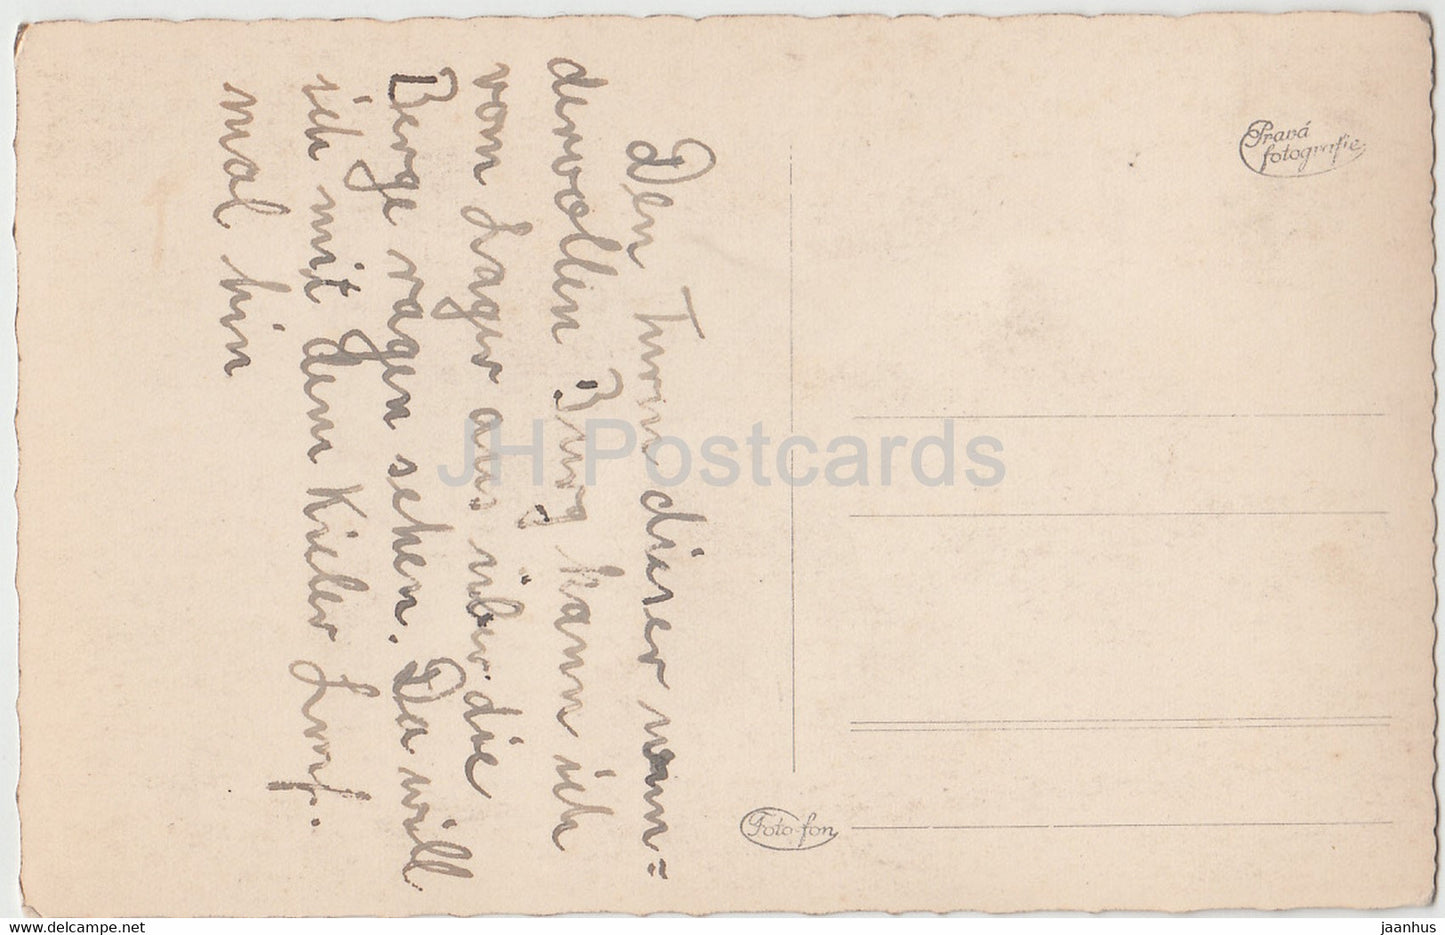 Den Turm dieser wun=
dervollen Burg kann ich
vom Lager aus über die
Berge ragen sehen. Da will
ich mit dem Kieler
mal hin
Pravá
fotografie
Foto-fon
JH Postcards
jaanhus